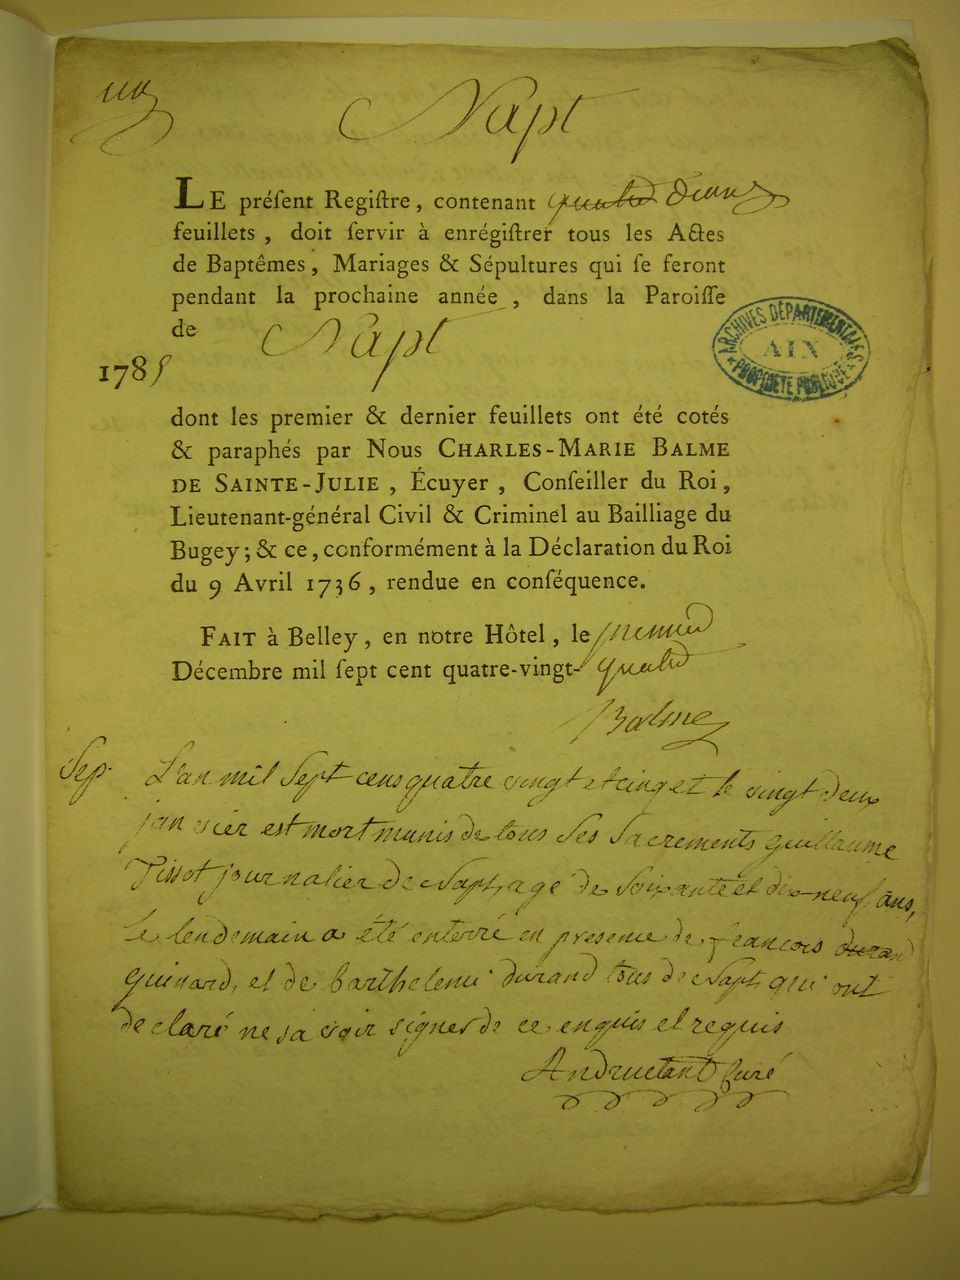 Napt
LE préſent Regiſtre, contenant quatre deux
feuillets, doit ſervir à enrégiſtrer tous les Actes
de Baptêmes, Mariages & Sépultures qui ſe feront
pendant la prochaine année, dans la Paroiſſe
de Napt
ARCHIVES DÉPARTEMENTALES
AIN
PROPRIÉTÉ PUBLIQUE
1785
dont les premier & dernier feuillets ont été cotés
& paraphés par Nous CHARLES-MARIE BALME
DE SAINTE-JULIE, Écuyer, Conſeiller du Roi,
Lieutenant-général Civil & Criminel au Bailliage du
Bugey; & ce, conformément à la Déclaration du Roi
du 9 Avril 1736, rendue en conſéquence.
FAIT à Belley, en notre Hôtel, le premier
Décembre mil ſept cent quatre-vingt-quatre
Balme
Sep. L'an mil Sept cens quatre vingt et cinq et le vingt deux
janvier est mort munis de tous Ses Sacrements guillaume
Tissot journalier de Napt, agé de Soixante et dix-neuf ans,
le lendemain a été enterré en presence de francois durand
guinard, et de barthelemi durand tous de Napt, qui ont
declaré ne savoir signer de ce enquis et requis
Andruetant Curé